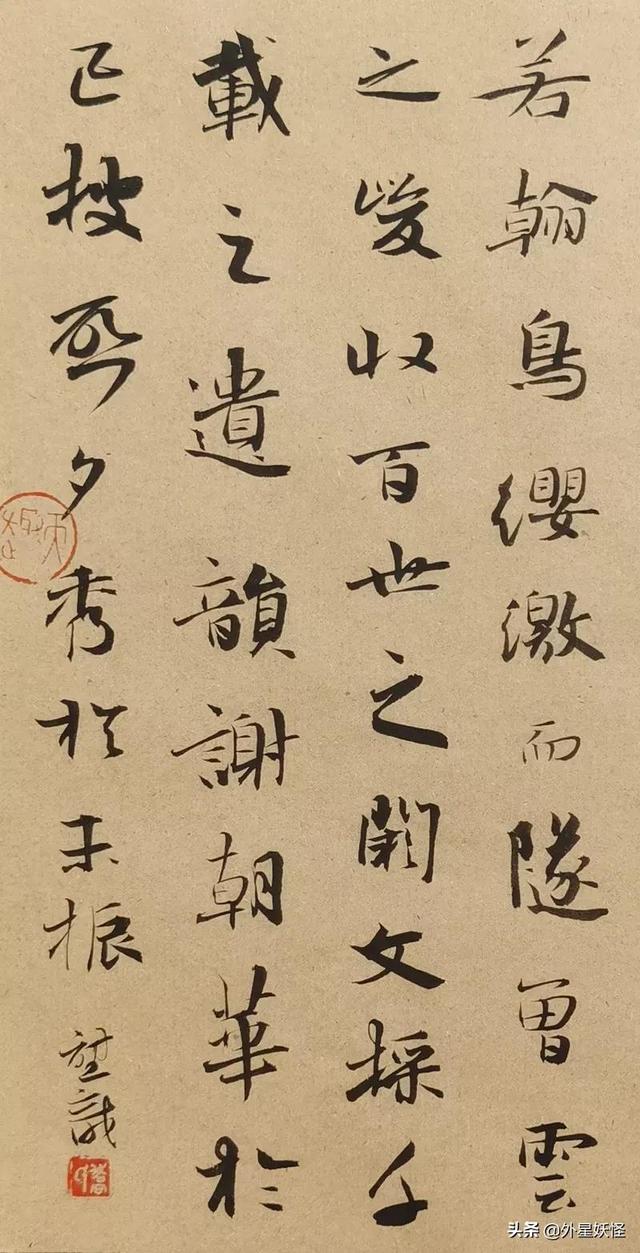 若翰鳥纓繳而隧曾雲
之峻收百世之闕文採千
載之遺韻謝朝華於
已披啓夕秀於未振
識
头条 @外星妖怪